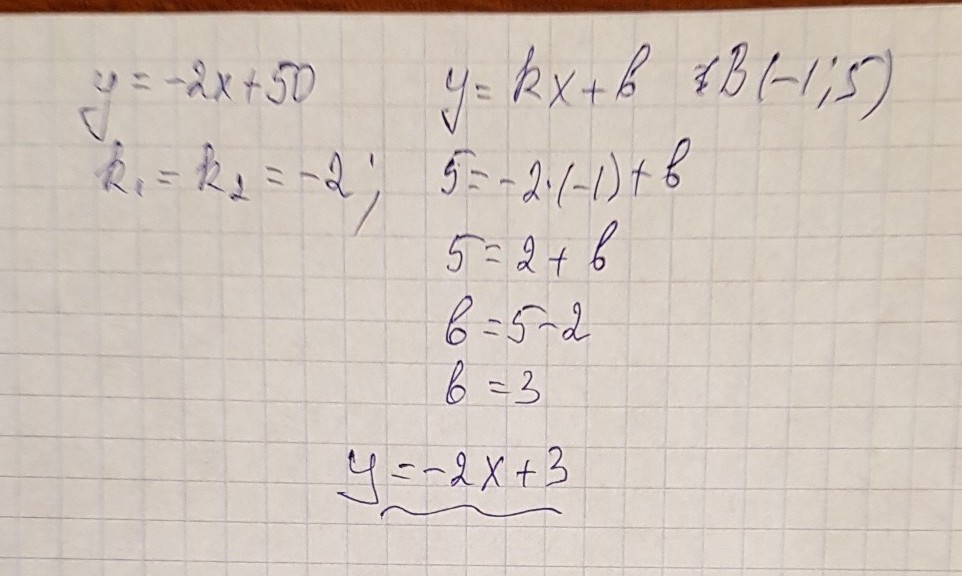 y = -2x+50 y = kx + b B(-1;5)
k₁ = k₂ = -2; 5 = -2·(-1) + b
5 = 2 + b
b = 5-2
b = 3
y = -2x + 3